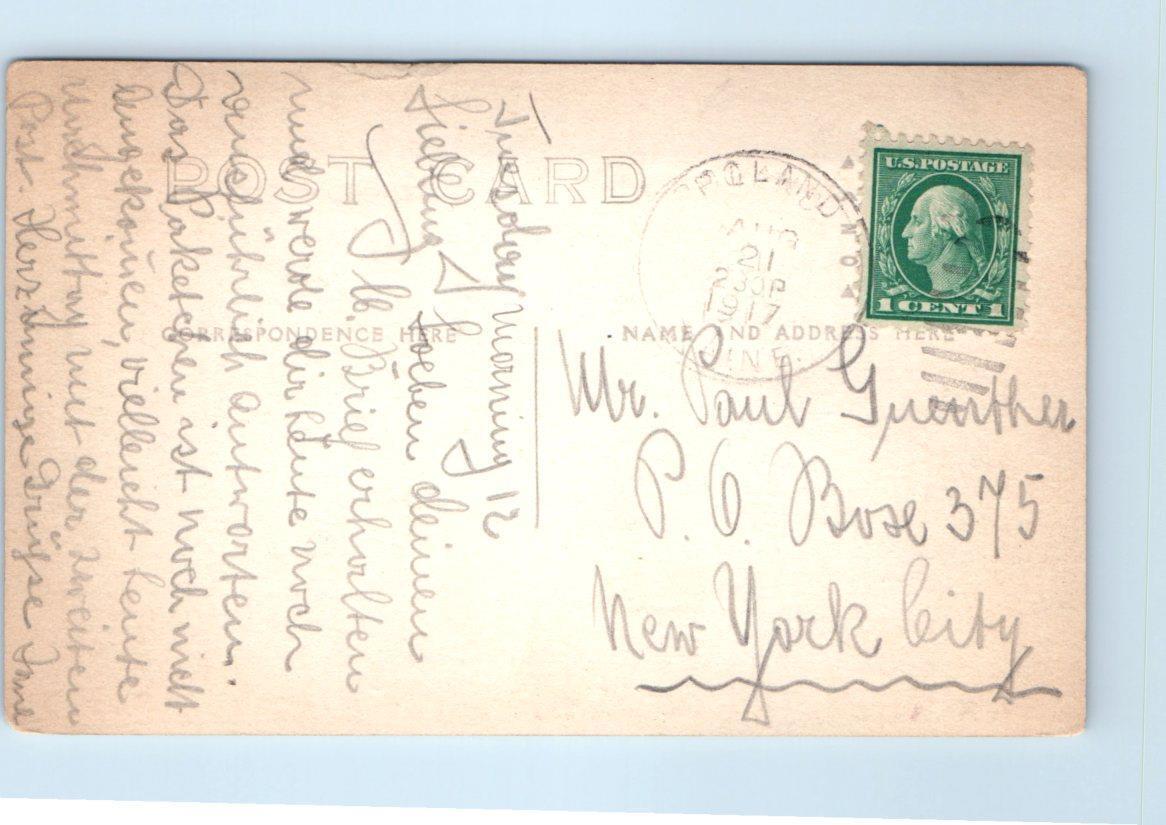 POST CARD
CORRESPONDENCE HERE
NAME AND ADDRESS HERE
U.S. POSTAGE
1 CENT 1
POLAND
AUG
21
2 30P
1917
Mr. Paul Guenther
P. O. Box 375
New York City
Tuesday morning 12
Liebling! Soeben deinen
lb. Brief erhalten
und werde dir heute noch
ausführlich antworten.
Das Paketchen ist noch nicht
angekommen, vielleicht heute
Nachmittag mit der zweiten
Post. Herzinnige Grüsse